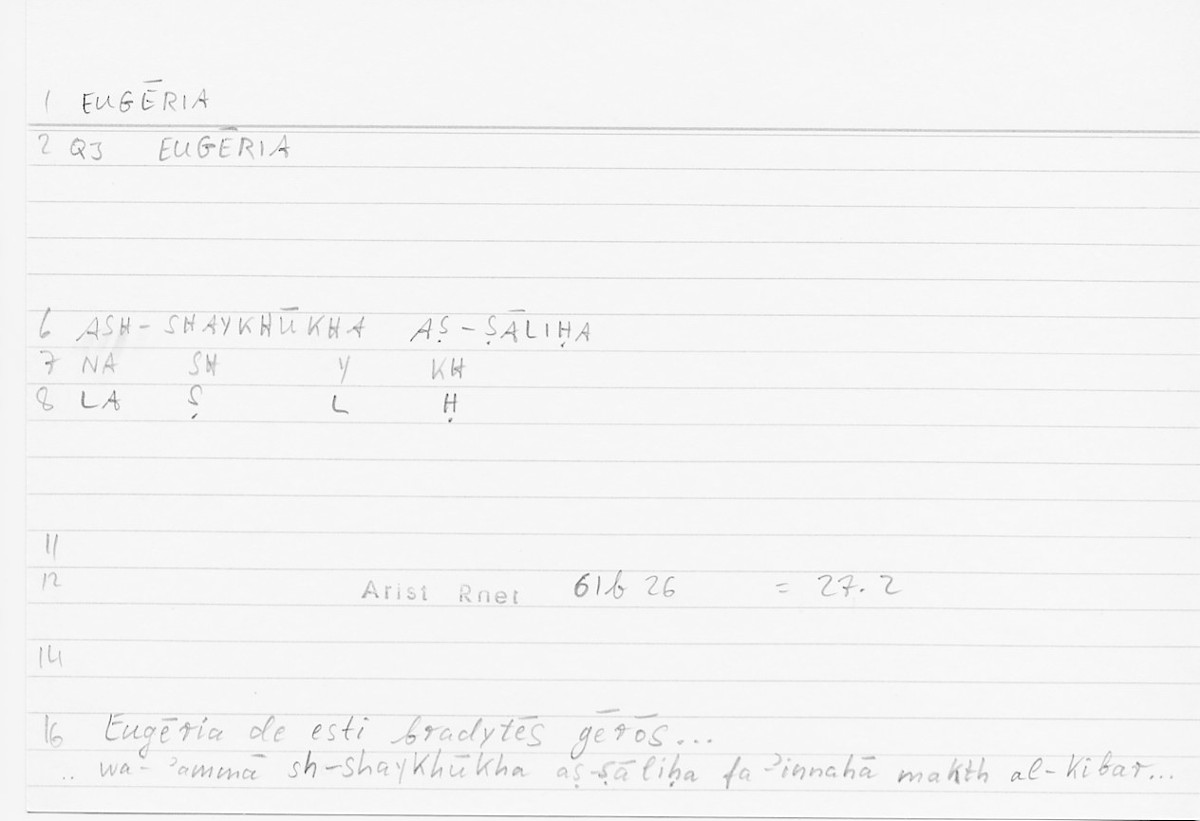 1 EUGĒRIA
2 QJ EUGĒRIA
6 ASH-SHAYKHŪKHA AṢ-ṢĀLIḤA
7 NA SH Y KH
8 LA Ṣ L Ḥ
11
12 Arist Rhet 61b 26 = 27.2
14
16 Eugēria de esti bradytēs gērōs...
.. wa-ʾammā sh-shaykhūkha aṣ-ṣāliḥa fa-ʾinnahā makth al-kibar...